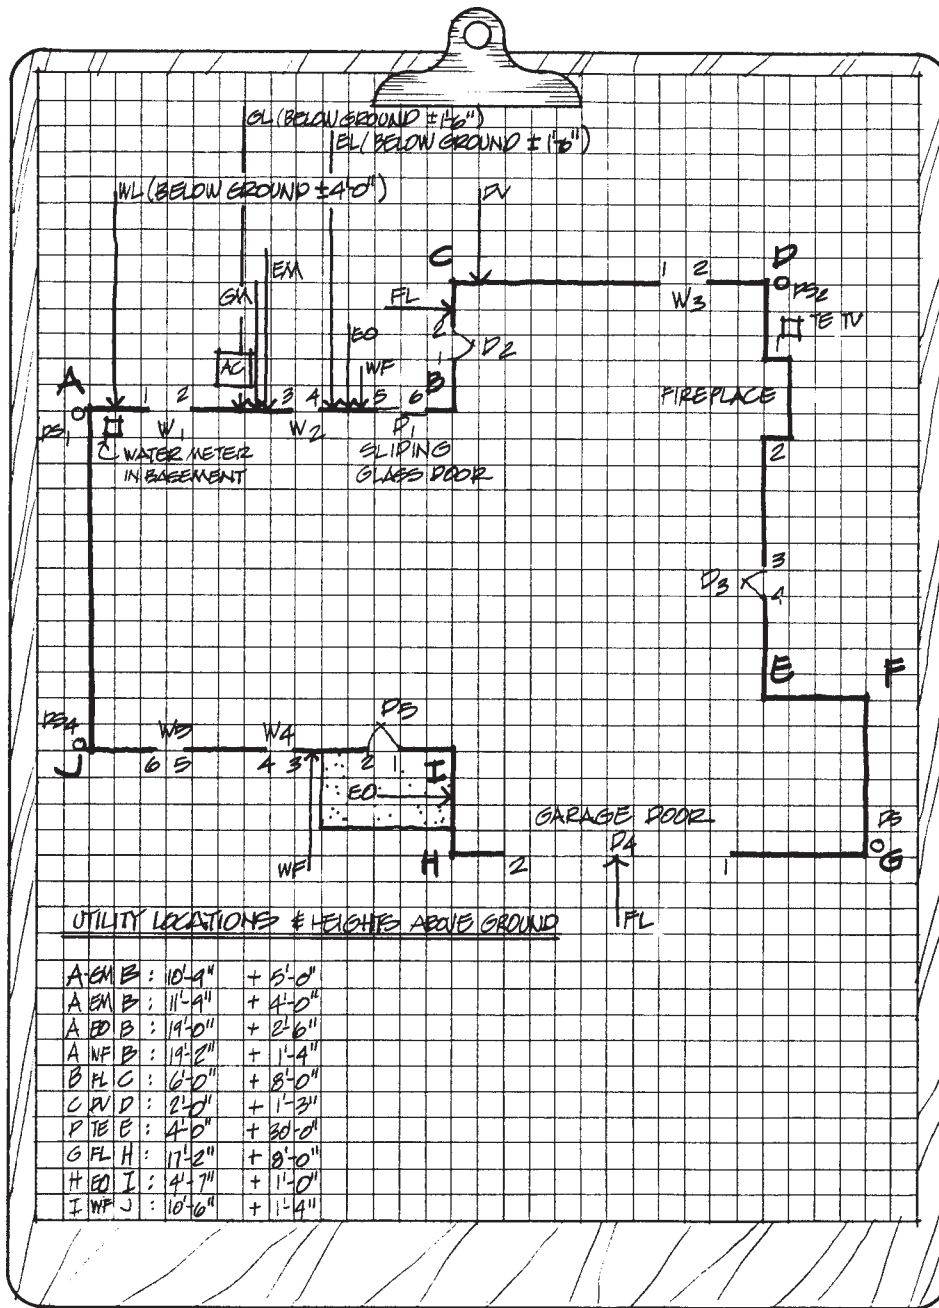 GL (BELOW GROUND ± 1'-6")
EL (BELOW GROUND ± 1'-6")
WL (BELOW GROUND ± 4'-0")
DV
C
D
EM
1 2
DS2
GM
FL
W3
TE TV
EO
2
D2
1
A
AC
WF
B
1
1 2
3 4 5 6
FIREPLACE
DS1
W1
W2
D1
WATER METER
IN BASEMENT
SLIDING
GLASS DOOR
2
3
D3
4
E
F
DS4
W5
W4
D5
J
6 5
4 3
2 1
I
EO
GARAGE DOOR
DS
D4
G
WF
H
2
1
FL
UTILITY LOCATIONS & HEIGHTS ABOVE GROUND
A GM B : 10'-9" + 5'-0"
A EM B : 11'-9" + 4'-0"
A EO B : 19'-0" + 2'-6"
A WF B : 19'-2" + 1'-4"
B FL C : 6'-0" + 8'-0"
C DV D : 2'-0" + 1'-3"
D TE E : 4'-0" + 30'-0"
G FL H : 17'-2" + 8'-0"
H EO I : 4'-7" + 1'-0"
I WF J : 10'-6" + 1'-4"